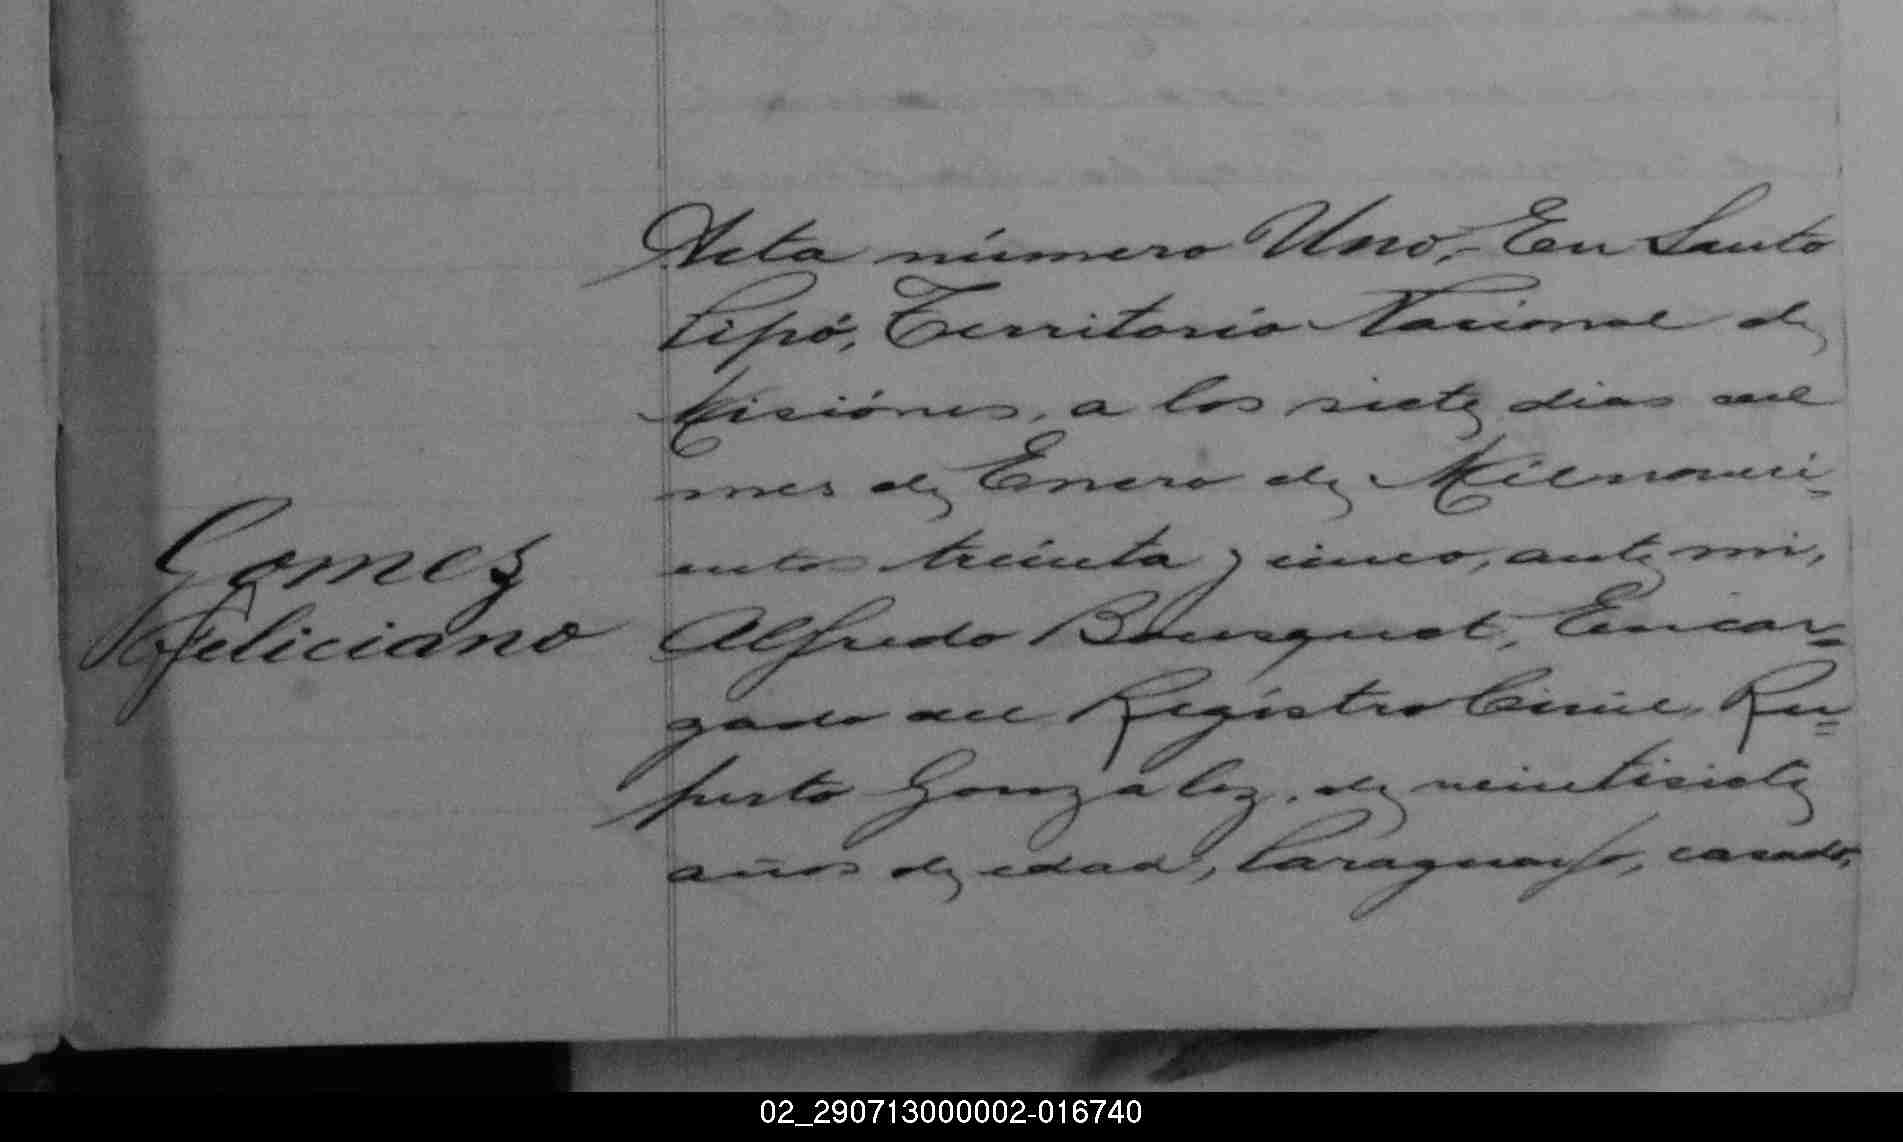 Gomez
Feliciano
Acta número Uno,- En Santo
Pipó, Territorio Nacional de
Misiónes, a los siete dias del
mes de Enero de Milnoveci-
entos treinta y cinco, ante mi,
Alfredo Bousquet, Encar=
gado del Registro Civil, Ru=
perto Gonzalez, de veintisiete
años de edad, Paraguayo, casado,
02_290713000002-016740